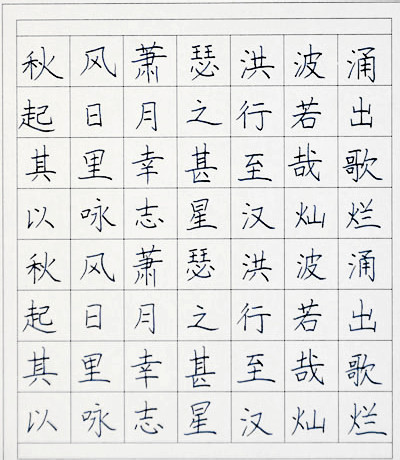 秋风萧瑟洪波涌
起日月之行若出
其里幸甚至哉歌
以咏志星汉灿烂
秋风萧瑟洪波涌
起日月之行若出
其里幸甚至哉歌
以咏志星汉灿烂